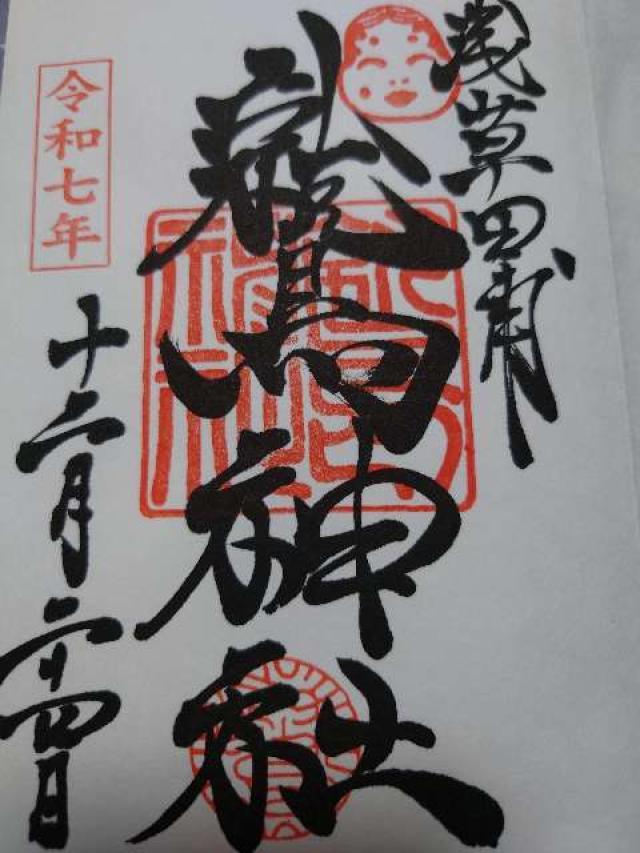 浅草田甫
鷲神社
令和七年
十二月二十四日